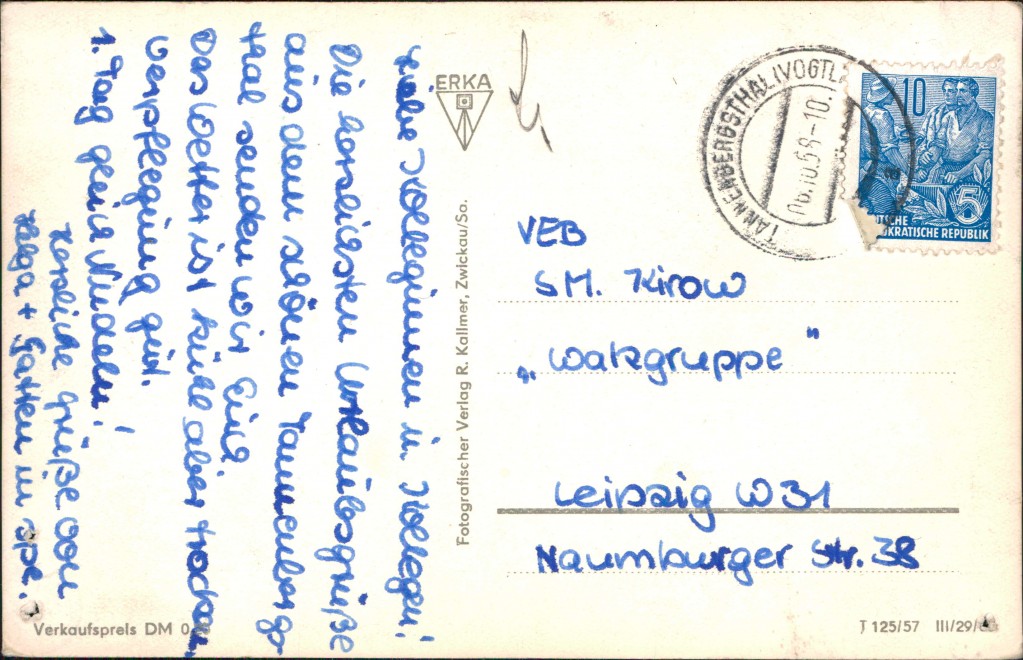 Liebe Kolleginnen u. Kollegen!
Die herzlichsten Urlaubsgrüße
aus dem schönen Tannenbergs-
thal senden wir Euch.
Das Wetter ist kühl aber trocken,
Verpflegung gut.
1. Tag gleich Nudeln!
Herzliche Grüße von
Helga + Gatten in spe.
ERKA
Fotografischer Verlag R. Kallmer, Zwickau/Sa.
TANNENBERGSTHAL (VOGTL
06.10.58-10.
10
5
DEUTSCHE
DEMOKRATISCHE REPUBLIK
VEB
SM. Kirow
„Walzgruppe"
Leipzig W31
Naumburger Str. 38
Verkaufspreis DM 0
T 125/57 III/29/